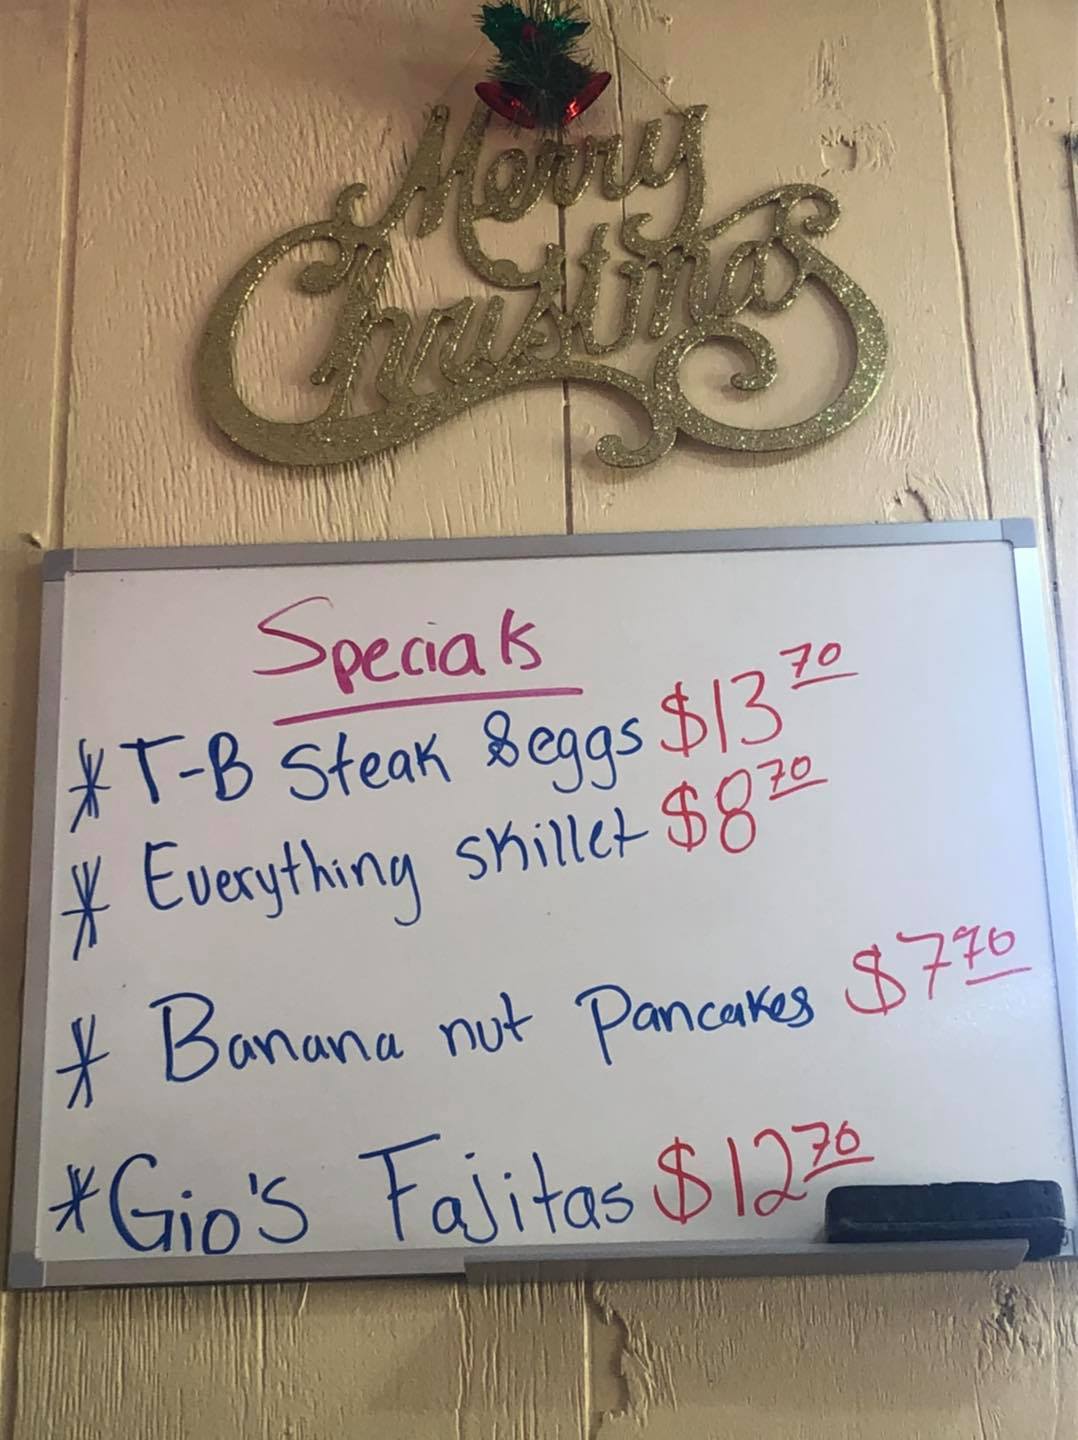 Merry
Christmas
Specials
* T-B Steak & eggs $13 70
* Everything skillet $8 70
* Banana nut Pancakes $7 70
* Gio's Fajitas $12 70